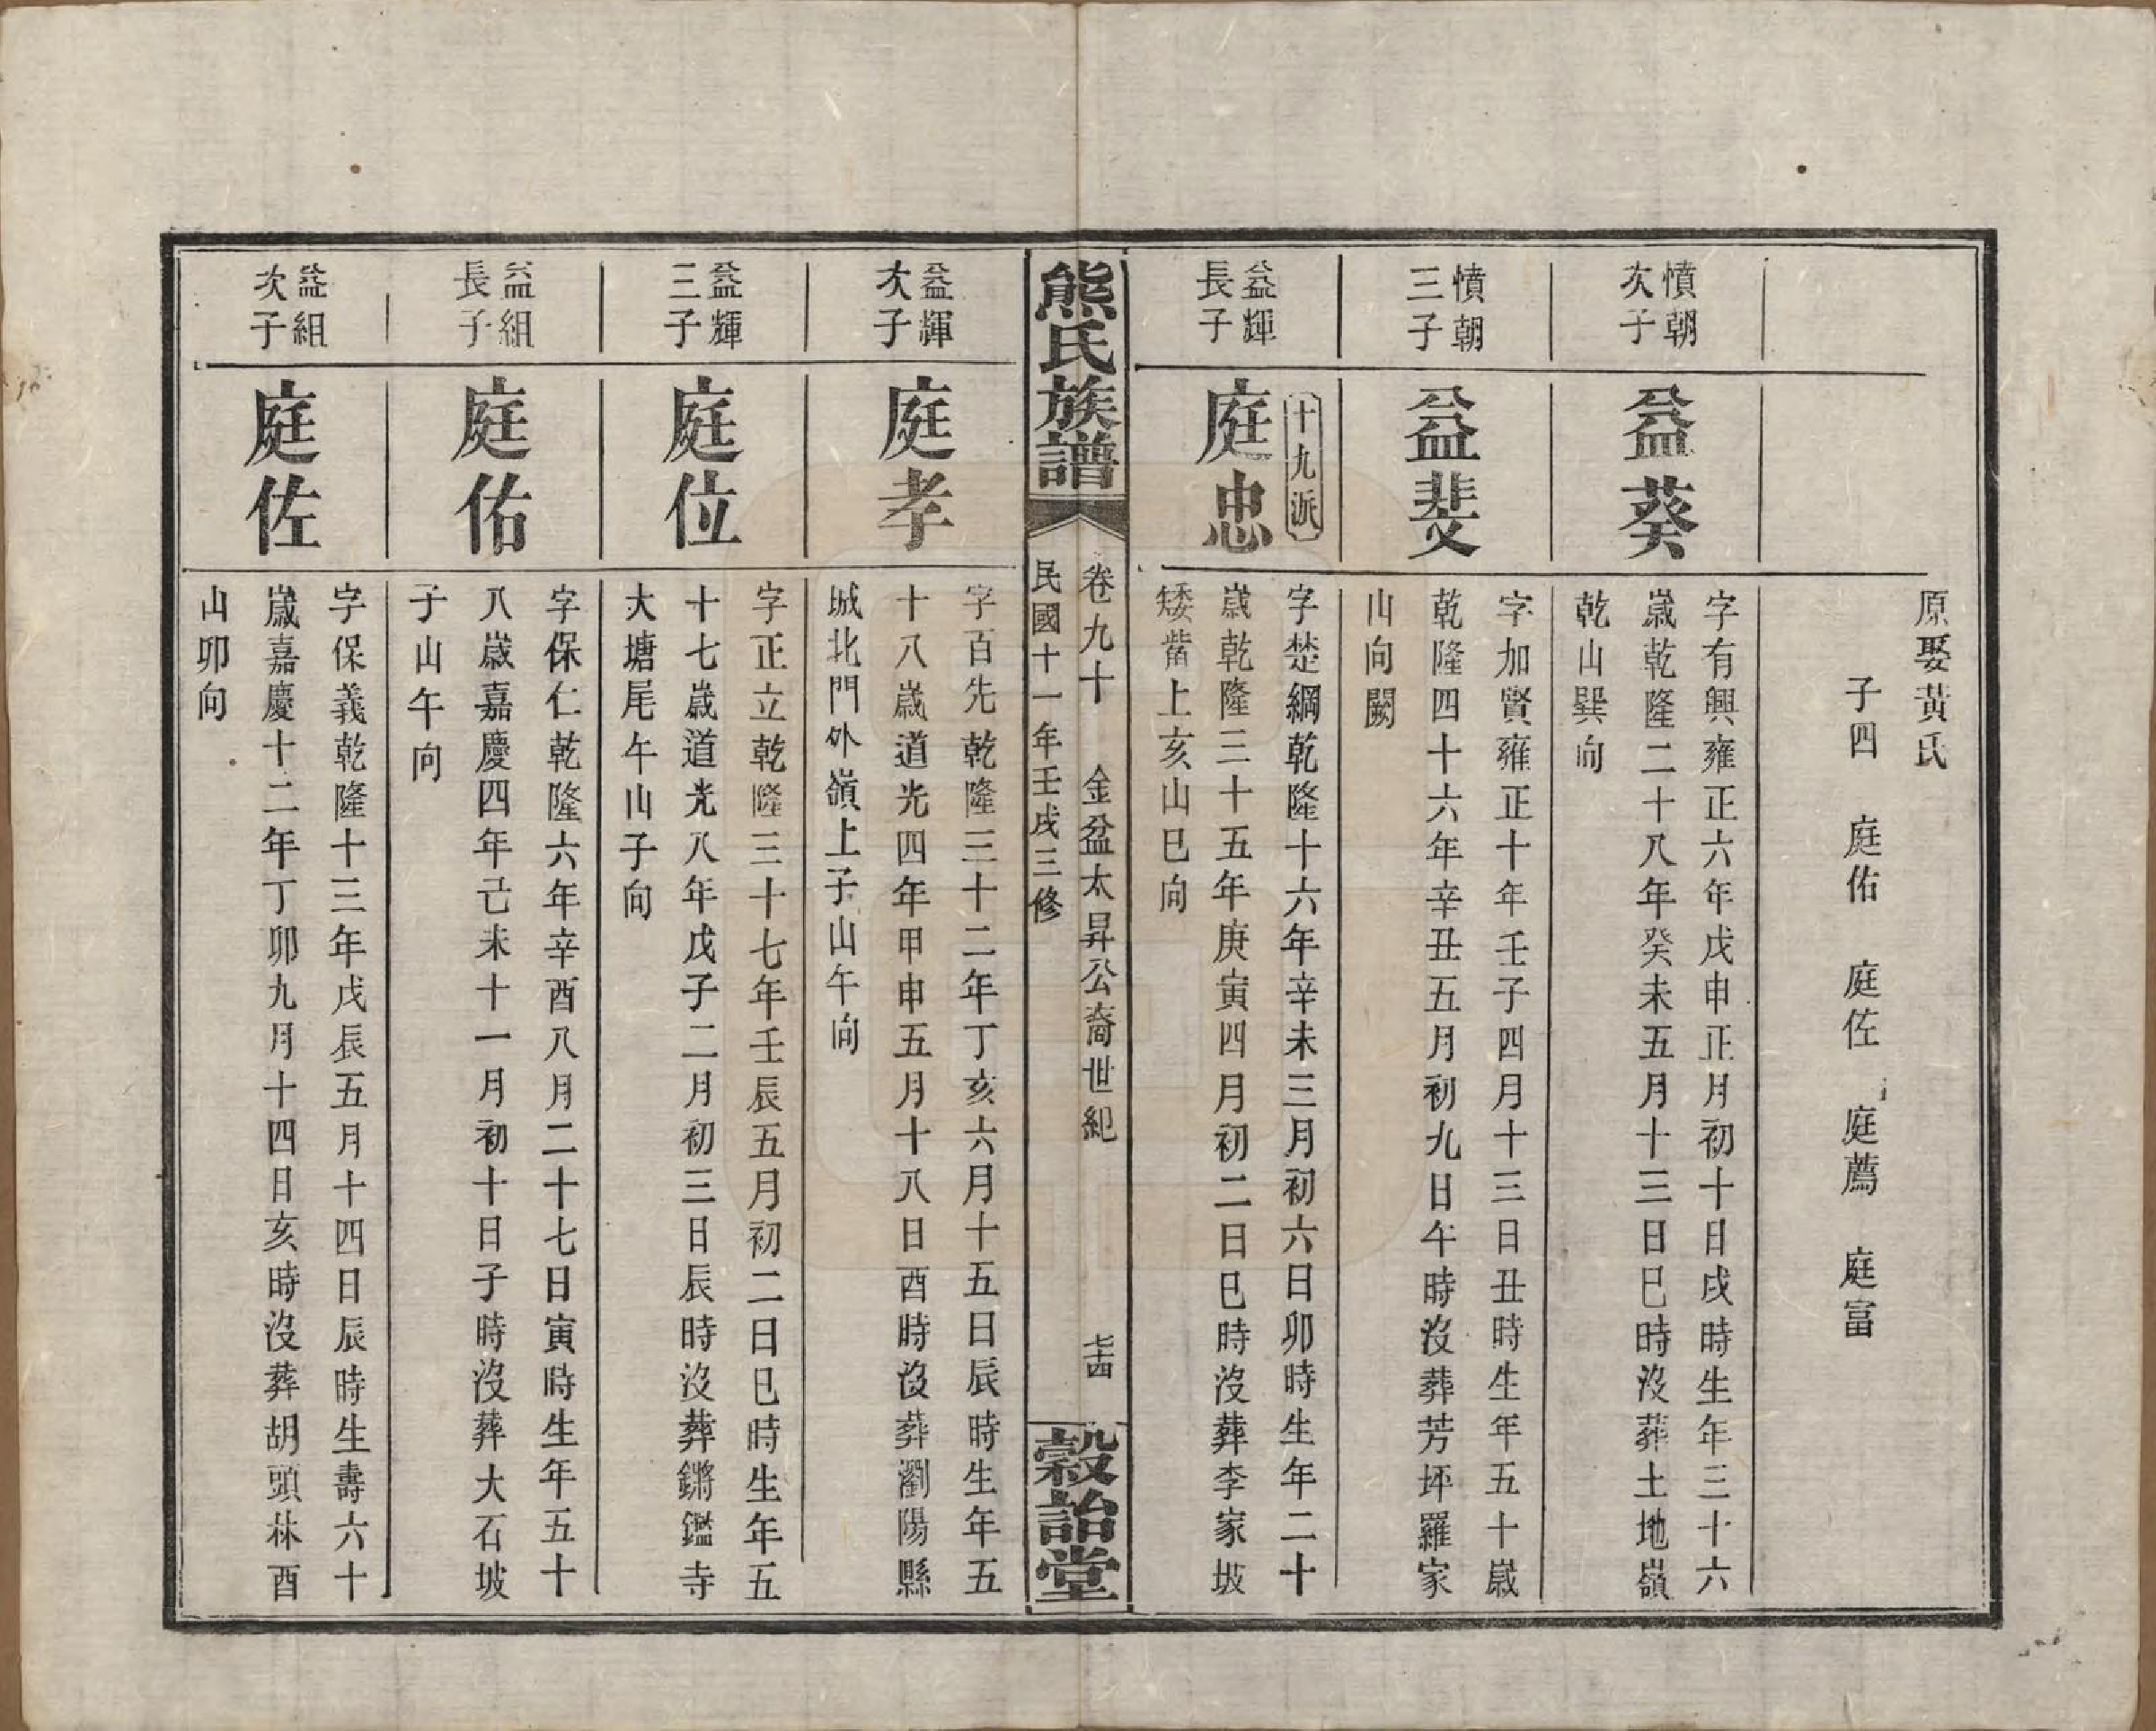 原娶黃氏
子四　庭佑　庭佐　庭薦　庭富
憤朝
次子
益葵
字有興雍正六年戊申正月初十日戌時生年三十六
歲乾隆二十八年癸未五月十三日巳時沒葬土地嶺
乾山巽向
憤朝
三子
益斐
字加賢雍正十年壬子四月十三日丑時生年五十歲
乾隆四十六年辛丑五月初九日午時沒葬芳坪羅家
山向闕
十九派
益輝
長子
庭忠
字楚綱乾隆十六年辛未三月初六日卯時生年二十
歲乾隆三十五年庚寅四月初二日巳時沒葬李家坡
矮㟸上亥山巳向
熊氏族譜
卷九十　金盆太昇公裔世紀
七十四
民國十一年壬戌三修
穀詒堂
益輝
次子
庭孝
字百先乾隆三十二年丁亥六月十五日辰時生年五
十八歲道光四年甲申五月十八日酉時沒葬瀏陽縣
城北門外嶺上子山午向
益輝
三子
庭位
字正立乾隆三十七年壬辰五月初二日巳時生年五
十七歲道光八年戊子二月初三日辰時沒葬鏘鑑寺
大塘尾午山子向
益組
長子
庭佑
字保仁乾隆六年辛酉八月二十七日寅時生年五十
八歲嘉慶四年己未十一月初十日子時沒葬大石坡
子山午向
益組
次子
庭佐
字保義乾隆十三年戊辰五月十四日辰時生壽六十
歲嘉慶十二年丁卯九月十四日亥時沒葬胡頭林酉
山卯向